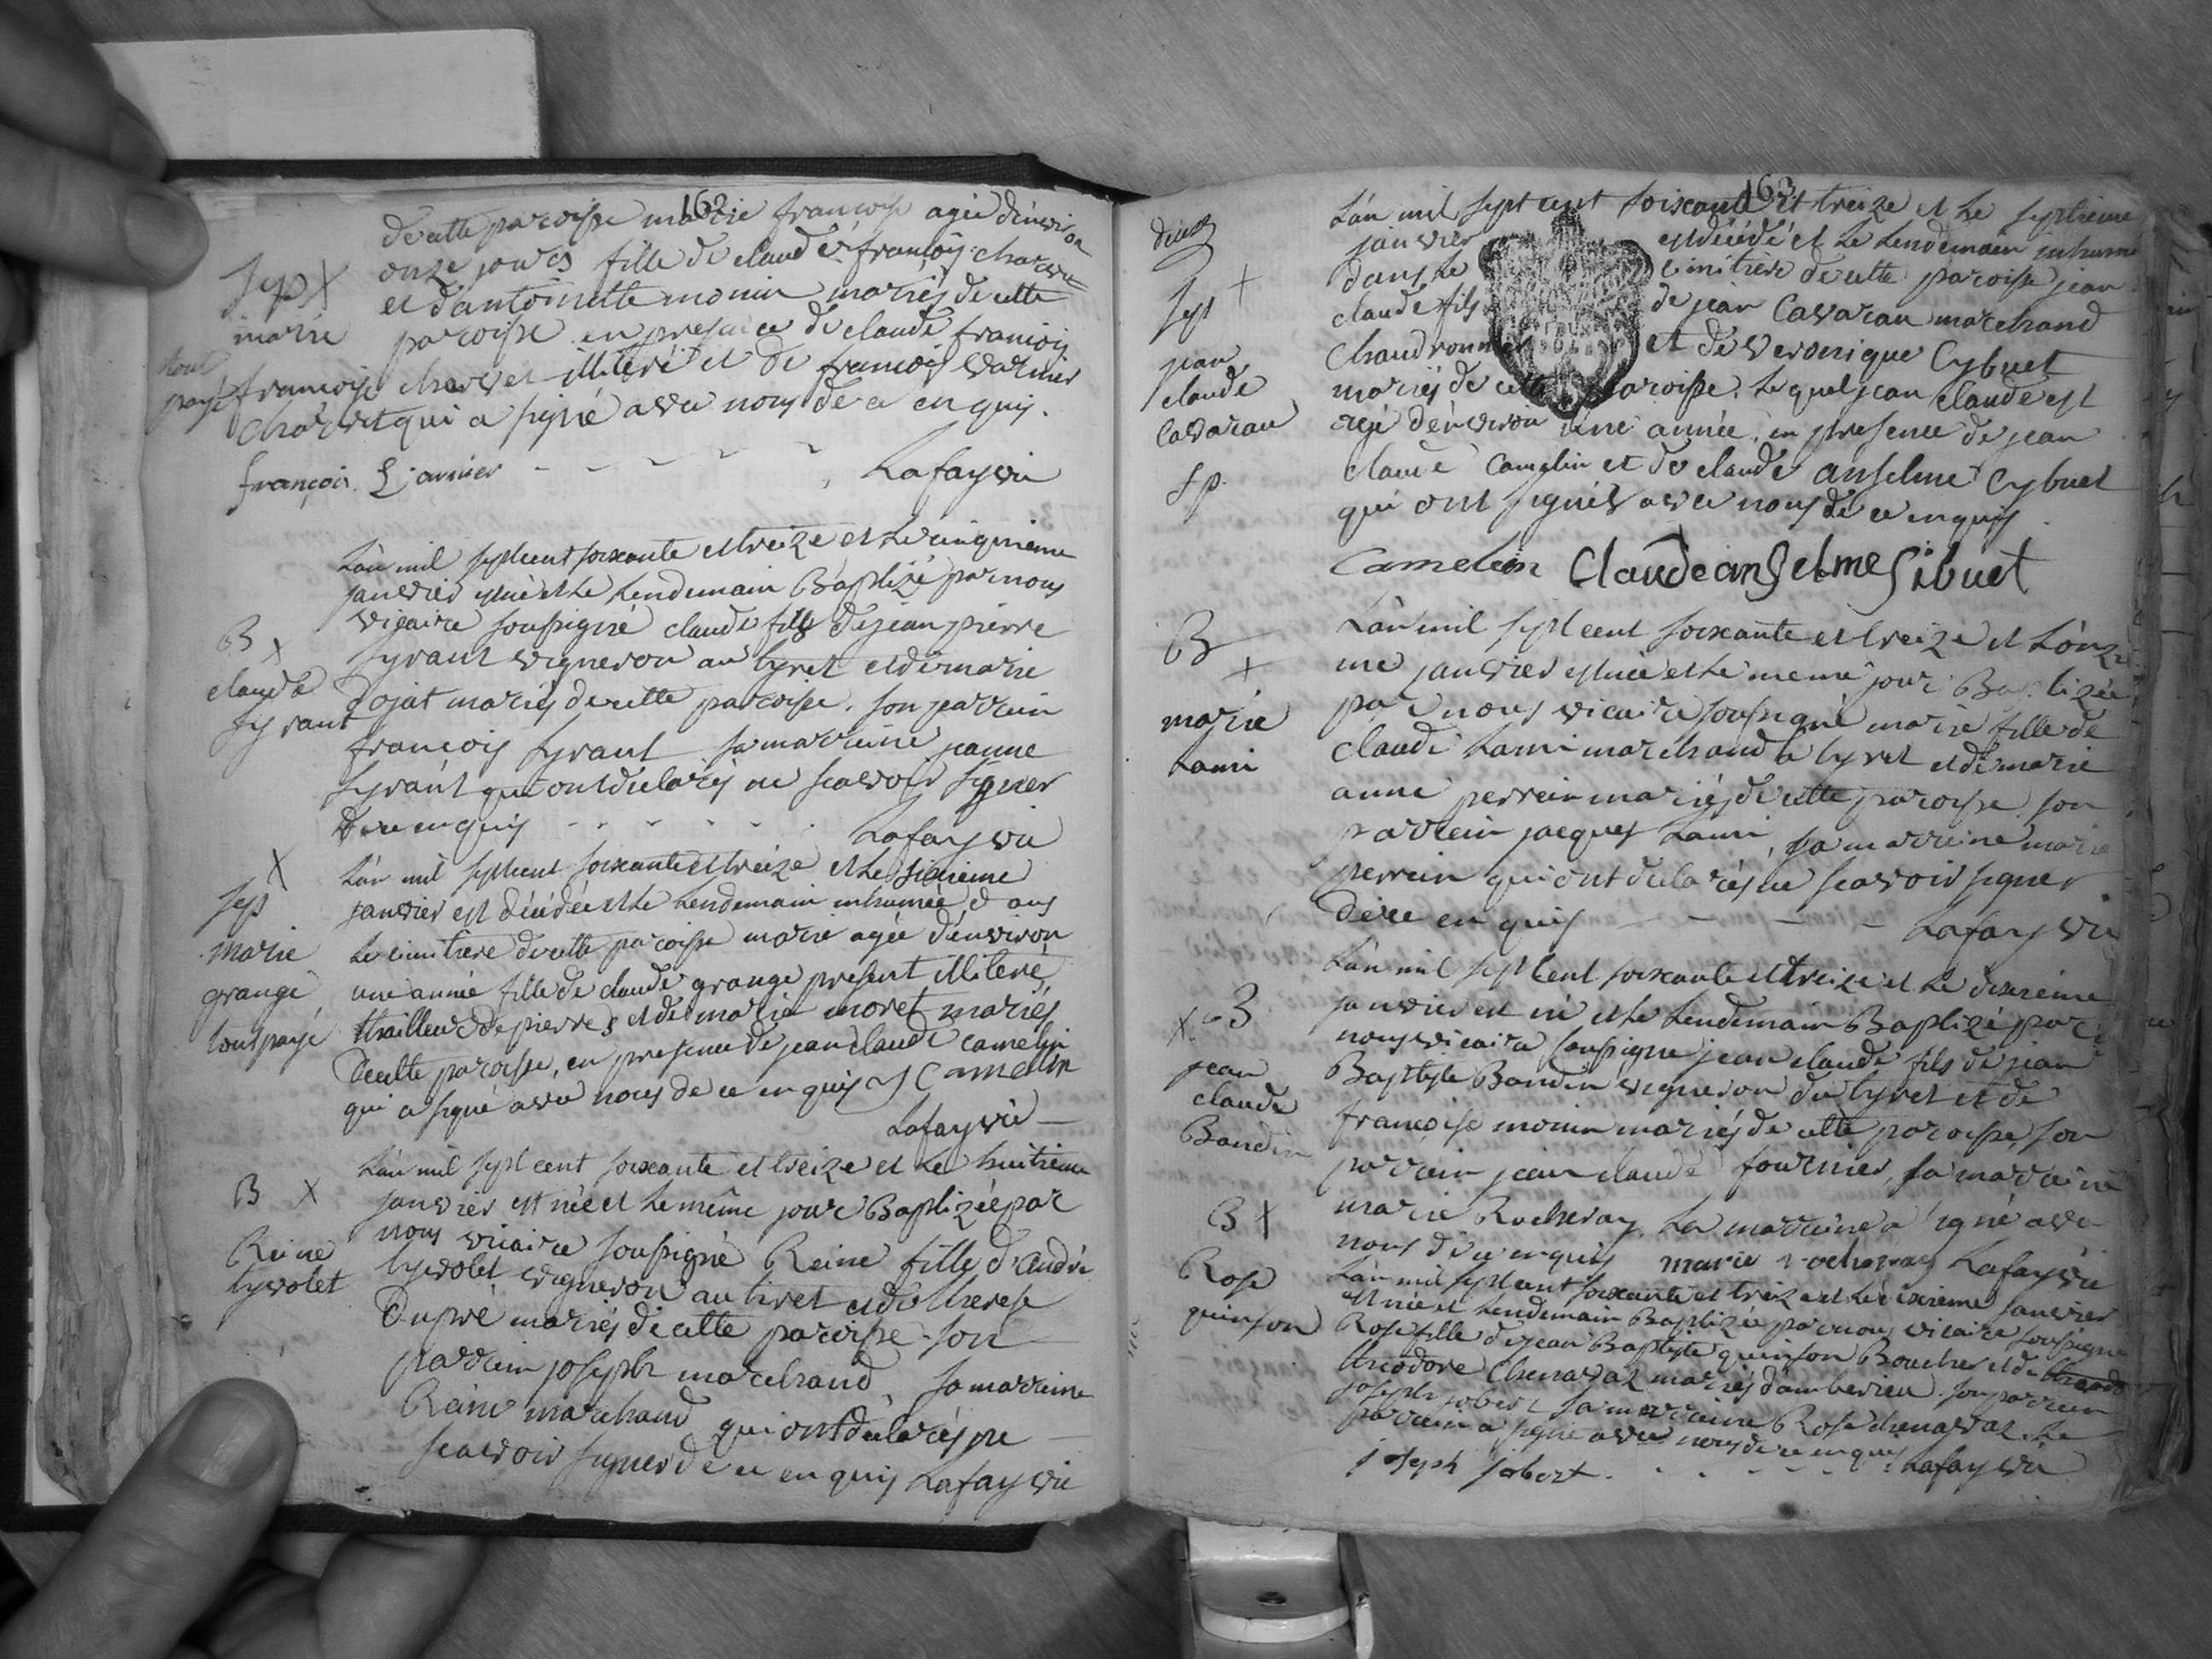 162
de cette paroisse marie francoise agée d'environ
onze jours fille de claude françois charvet
et d'antoinette monin mariés de cette
paroisse en presence de claude francois
charvet illiteré et de francois varnier
qui a signé avec nous de ce enquis.
françois
Lafay vic
Sep X
marie
francoise
charvet
tout
payé
L'an mil sept cent soixante et treize et le cinquieme
janvier est né et le lendemain Baptizé par nous
vicaire soussigné claude fils de jean pierre
syraut vigneron au tyret et de marie
dojat mariés de cette paroisse. son parrein
françois syraut sa marreine jeanne
syraut qui ont declarés ne scavoir signer
de ce enquis
Lafay vic
B X
claude
syraut
L'an mil sept cent soixante et treize et le sixieme
janvier est décédée et le lendemain inhumée dans
le cimitiere de cette paroisse marie agée d'environ
une année fille de claude grange present illiteré
thailleur de pierres et de marie moret mariés
de cette paroisse, en presence de jean claude camelin
qui a signé avec nous de ce enquis J Camelin
Lafay vic
X
Sep
marie
grange
tout payé
L'an mil sept cent soixante et treize et le huitieme
janvier est née et le même jour Baptizée par
nous vicaire soussigné Reine fille d'andré
tyvolet vigneron au tiret et de therese
Dupré mariés de cette paroisse son
parrein joseph marchand, sa marreine
Reine marchand qui ont déclarés ne
scavoir signer de ce enquis Lafay vic
B X
Reine
tyvolet
163
L'an mil sept cent soixante et treize et le septieme
janvier est décédé et le lendemain inhumé
dans le cimitiere de cette paroisse jean
claude fils de jean Cavarau marchand
chaudronnier et de veronique Cybuet
mariés de cette paroisse. lequel jean claude est
agé d'environ une année, en presence de jean
claude Camelin et de claude anselme Cybuet
qui ont signés avec nous de ce enquis
Camelin Claude anselme Sibuet
Sep X
jean
claude
Cavarau
L'an mil sept cent soixante et treize et l'onzie
me janvier est née et le meme jour Baptizée
par nous vicaire soussigné marie fille de
claude Lami marchand à tyret et de marie
anne perrein mariés de cette paroisse son
parrein jacques Lami, sa marreine marie
perrein qui ont declarés ne scavoir signer
de ce enquis Lafay vic
B X
marie
Lami
L'an mil sept cent soixante et treize et le dixieme
janvier est né et le lendemain Baptizé par
nous vicaire soussigné jean claude fils de jean
Baptiste Bondin vigneron du tyret et de
françoise monin mariés de cette paroisse, son
parrein jean claude fournier, sa marreine
marie Rocheray. La marreine a signé avec
nous de ce enquis marie rocheray Lafay vic
X B
jean
claude
Bondin
L'an mil sept cent soixante et treize et le dixieme janvier
est née et lendemain Baptizée par nous vicaire soussigné
Rose fille de jean Baptiste quinson Boucher et de
theodore Chenavaz mariés d'amberieu. son parrein
joseph jobert sa marreine Rose chenavaz le
parrein a signé avec nous de ce enquis
joseph jobert Lafay vic
B X
Rose
quinson